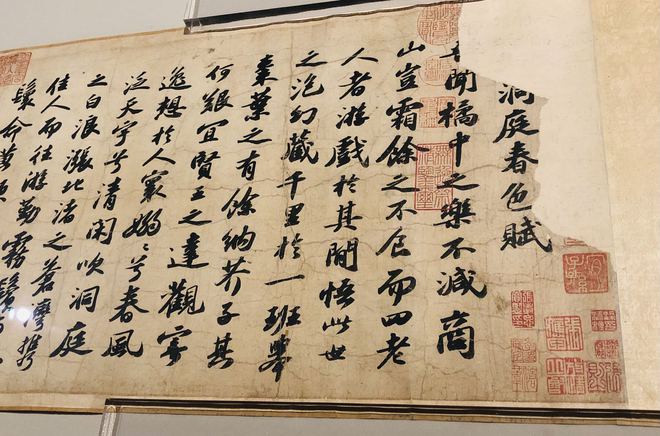 洞庭春色賦
吾聞橘中之樂不減商
山豈霜餘之不食而四老
人者游戲於其間悟此世
之泡幻藏千里於一班舉
棗葉之有餘納芥子其
何艱宜賢王之達觀寄
逸想於人寰嫋〻兮春風
泛天宇兮清閑吹洞庭
之白浪漲北渚之蒼灣攜
佳人而往游勤霧鬢
鬟命黃頭